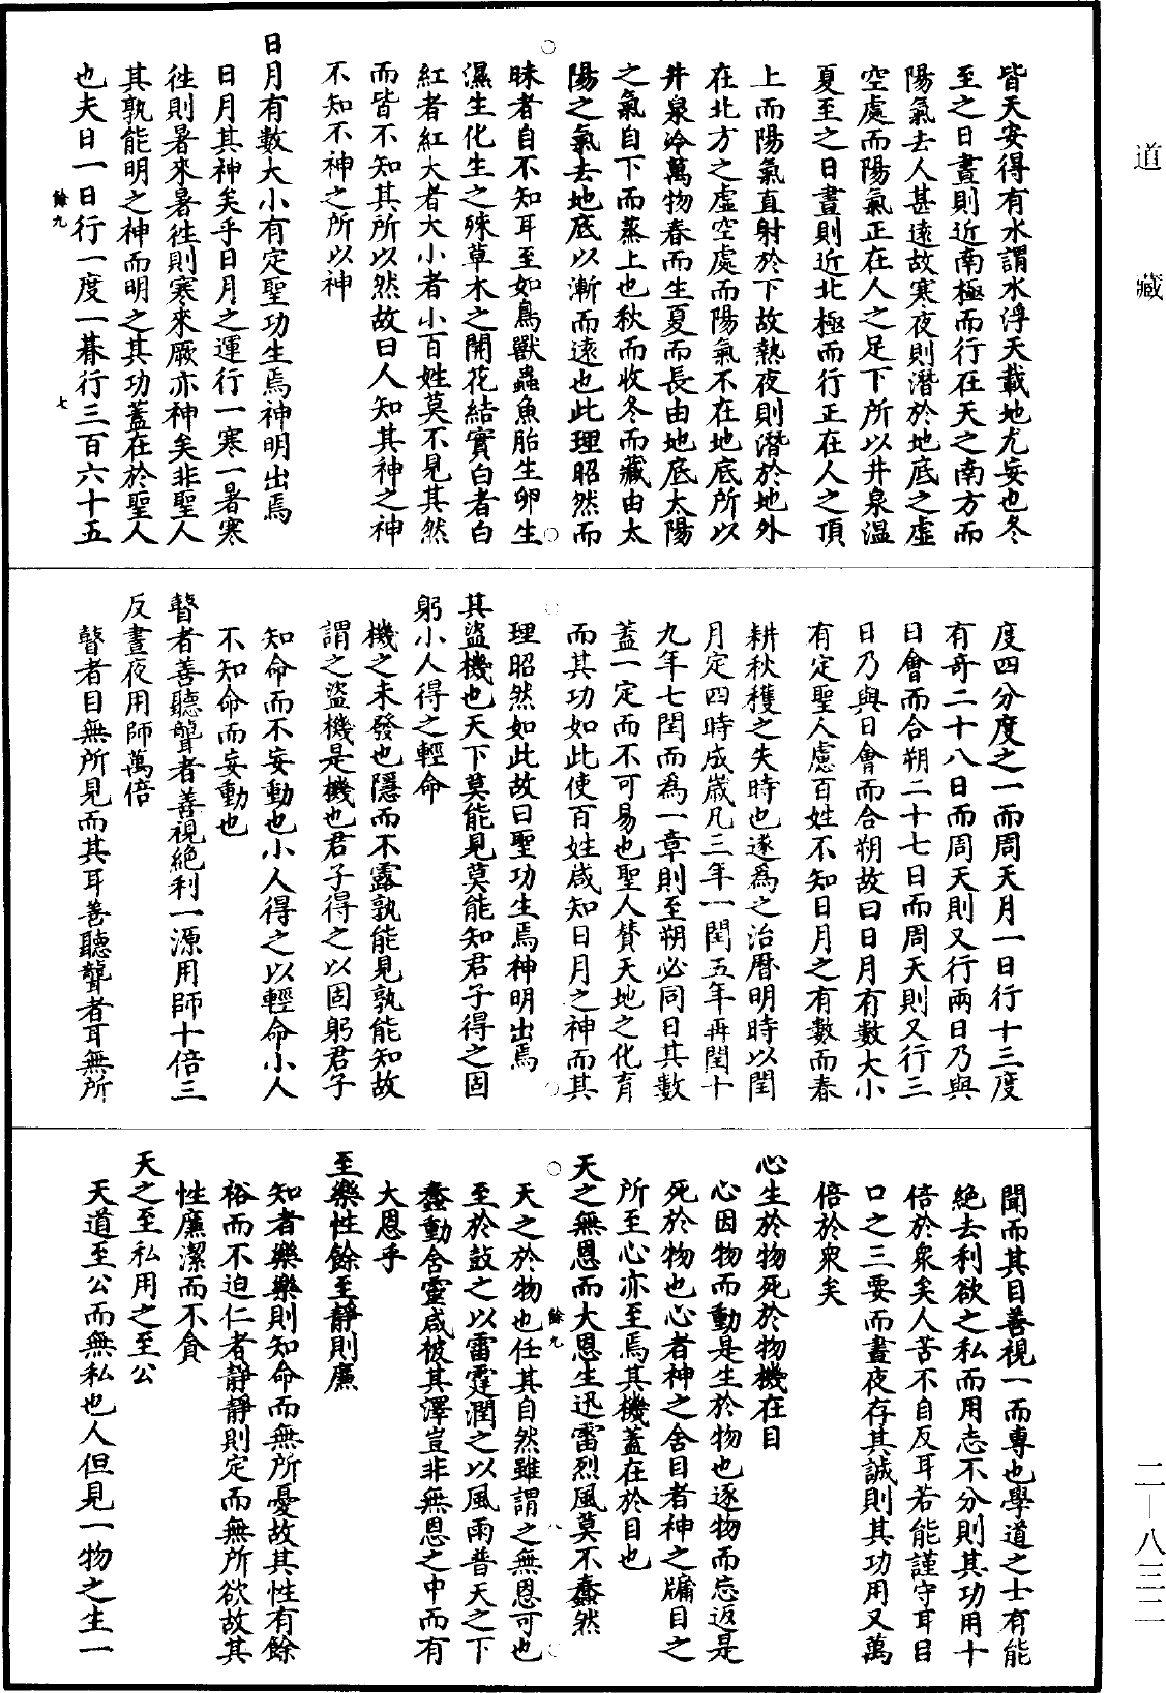 道藏
二—八三二
皆天安得有水謂水浮天載地尤妄也冬
至之日晝則近南極而行在天之南方而
陽氣去人甚遠故寒夜則潛於地底之虛
空處而陽氣正在人之足下所以井泉溫
夏至之日晝則近北極而行正在人之頂
上而陽氣直射於下故熱夜則潛於地外
在北方之虛空處而陽氣不在地底所以
井泉冷萬物春而生夏而長由地底太陽
之氣自下而蒸上也秋而收冬而藏由太
陽之氣去地底以漸而遠也此理昭然而
昧者自不知耳至如鳥獸蟲魚胎生卵生
濕生化生之殊草木之開花結實白者白
紅者紅大者大小者小百姓莫不見其然
而皆不知其所以然故曰人知其神之神
不知不神之所以神
日月有數大小有定聖功生焉神明出焉
日月其神矣乎日月之運行一寒一暑寒
徃則暑來暑徃則寒來厥亦神矣非聖人
其孰能明之神而明之其功蓋在於聖人
也夫日一日行一度一朞行三百六十五
餘九
七
度四分度之一而周天月一日行十三度
有奇二十八日而周天則又行兩日乃與
日會而合朔二十七日而周天則又行三
日乃與日會而合朔故曰日月有數大小
有定聖人慮百姓不知日月之有數而春
耕秋穫之失時也遂為之治曆明時以閏
月定四時成歲凡三年一閏五年再閏十
九年七閏而為一章則至朔必同日其數
蓋一定而不可易也聖人贊天地之化育
而其功如此使百姓咸知日月之神而其
理昭然如此故曰聖功生焉神明出焉
其盜機也天下莫能見莫能知君子得之固
躬小人得之輕命
機之未發也隱而不露孰能見孰能知故
謂之盜機是機也君子得之以固躬君子
知命而不妄動也小人得之以輕命小人
不知命而妄動也
瞽者善聽聾者善視絕利一源用師十倍三
反晝夜用師萬倍
瞽者目無所見而其耳善聽聾者耳無所
聞而其目善視一而專也學道之士有能
絕去利欲之私而用志不分則其功用十
倍於衆矣人苦不自反耳若能謹守耳目
口之三要而晝夜存其誠則其功用又萬
倍於衆矣
心生於物死於物機在目
心因物而動是生於物也逐物而忘返是
死於物也心者神之舍目者神之牖目之
所至心亦至焉其機蓋在於目也
天之無恩而大恩生迅雷烈風莫不蠢然
餘九
八
天之於物也任其自然雖謂之無恩可也
至於鼓之以雷霆潤之以風雨普天之下
蠢動含靈咸被其澤豈非無恩之中而有
大恩乎
至樂性餘至靜則廉
知者樂樂則知命而無所憂故其性有餘
裕而不迫仁者靜靜則定而無所欲故其
性廉潔而不貪
天之至私用之至公
天道至公而無私也人但見一物之生一